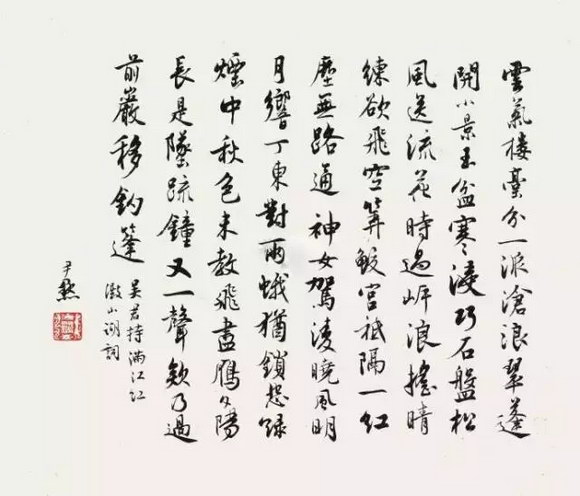 雲氣樓臺分一派滄浪翠蓬
開小景玉盆寒浸巧石盤松
風送流花時過岸浪搖晴
練欲飛空算鮫宮祗隔一紅
塵無路通神女駕淩曉風明
月響丁東對兩蛾猶鎖怨綠
煙中秋色未教飛盡鴈夕陽
長是墜疏鐘又一聲欸乃過
前巖移釣篷
吳君特滿江紅
澱山湖詞
尹默